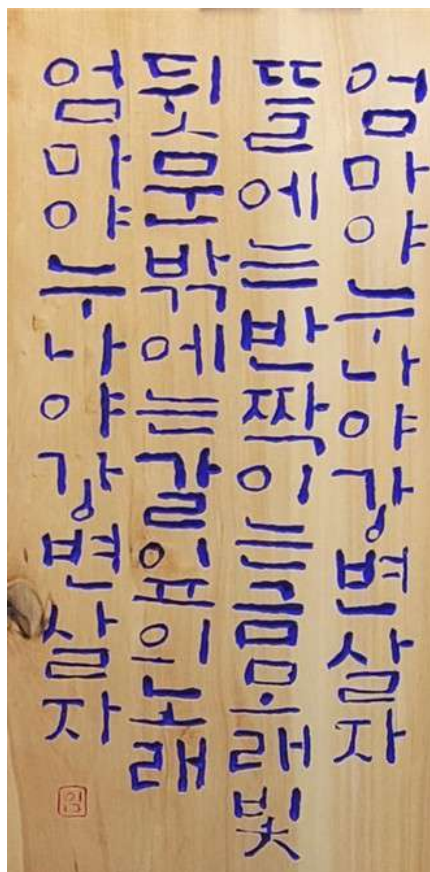 엄마야누나야강변살자
뜰에는반짝이는금모래빛
뒷문밖에는갈잎의노래
엄마야누나야강변살자